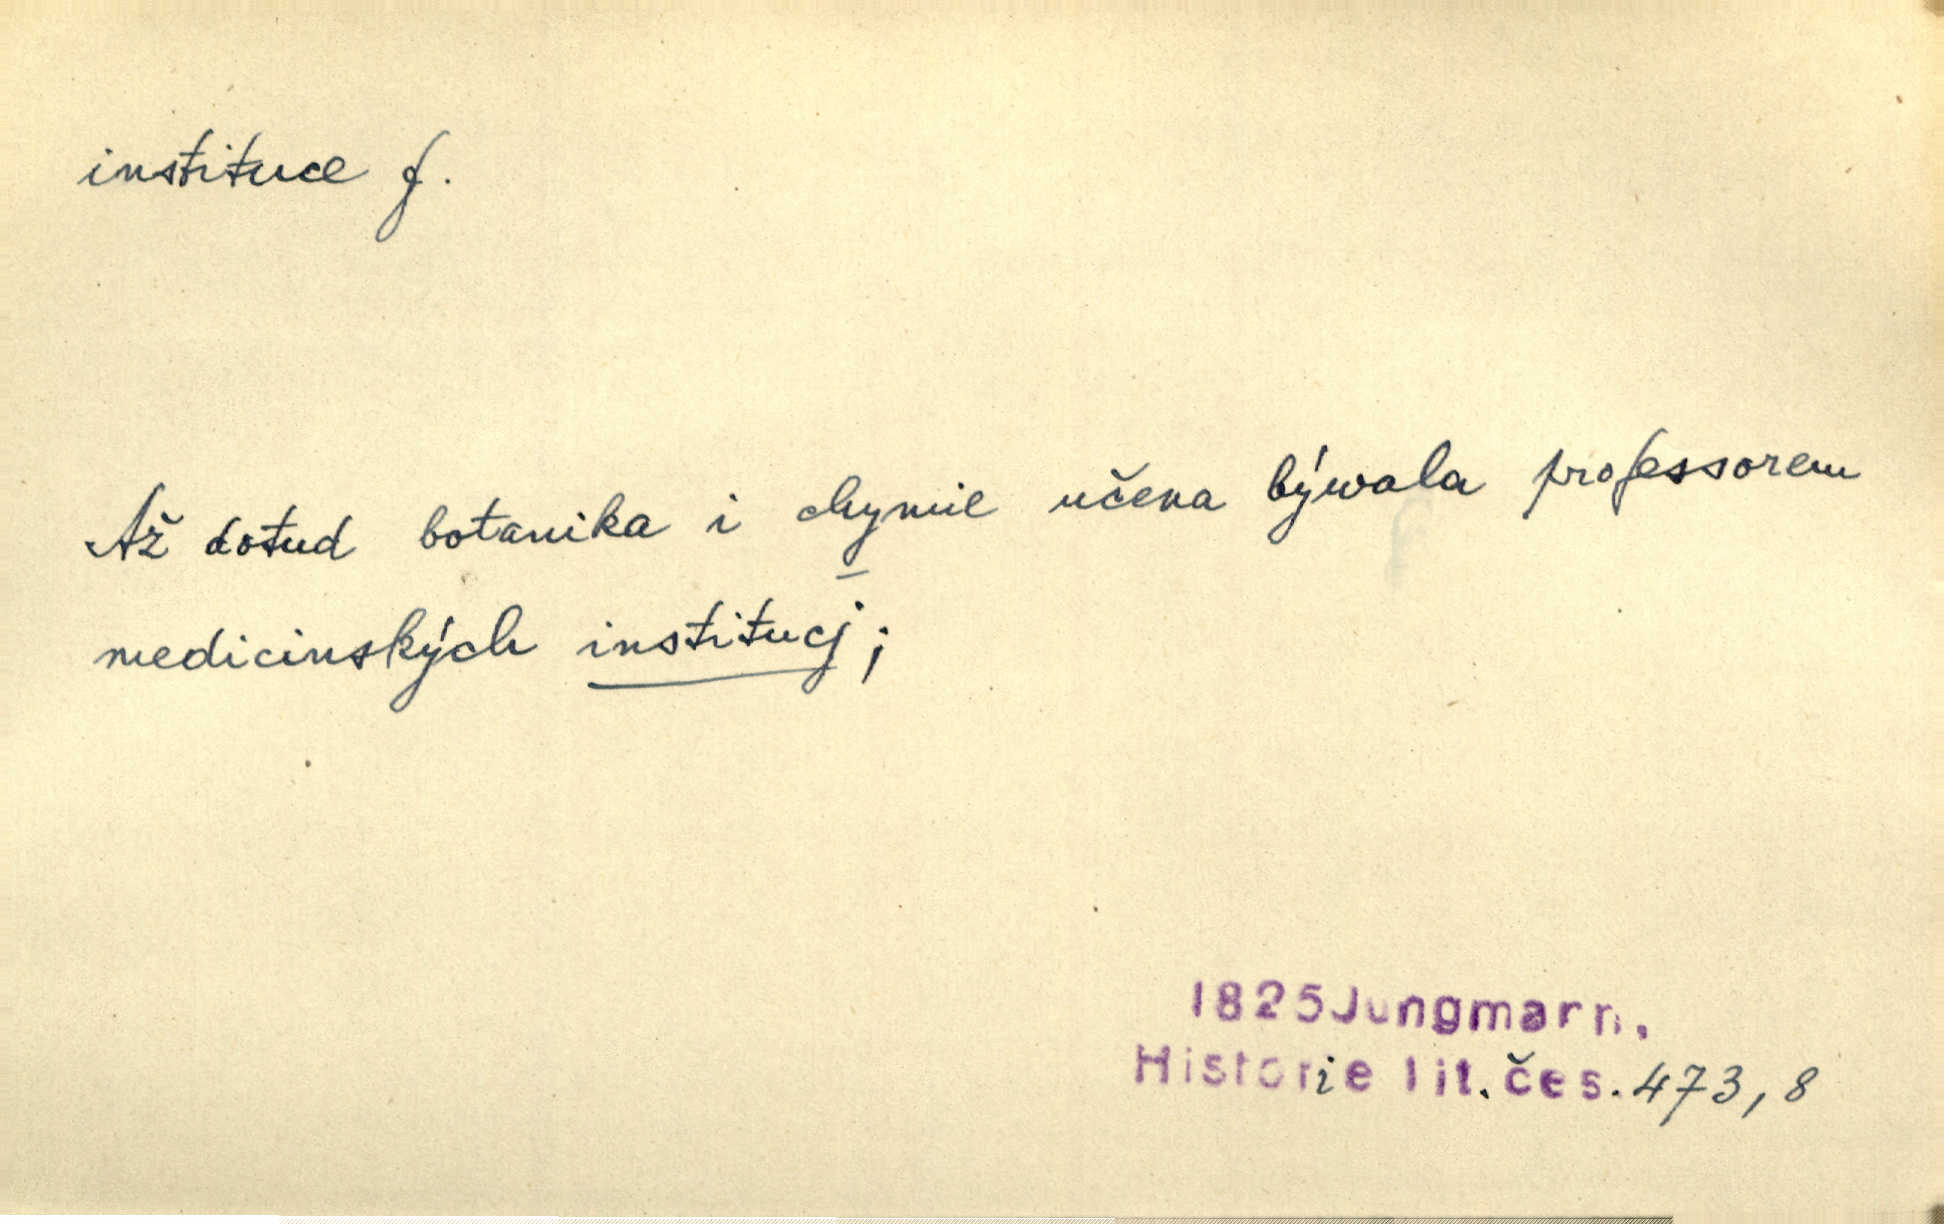 instituce f.
Až dotud botanika i chymie učena býwala professorem
medicinských institucj;
1825 Jungmann,
Historie lit. čes. 473, 8